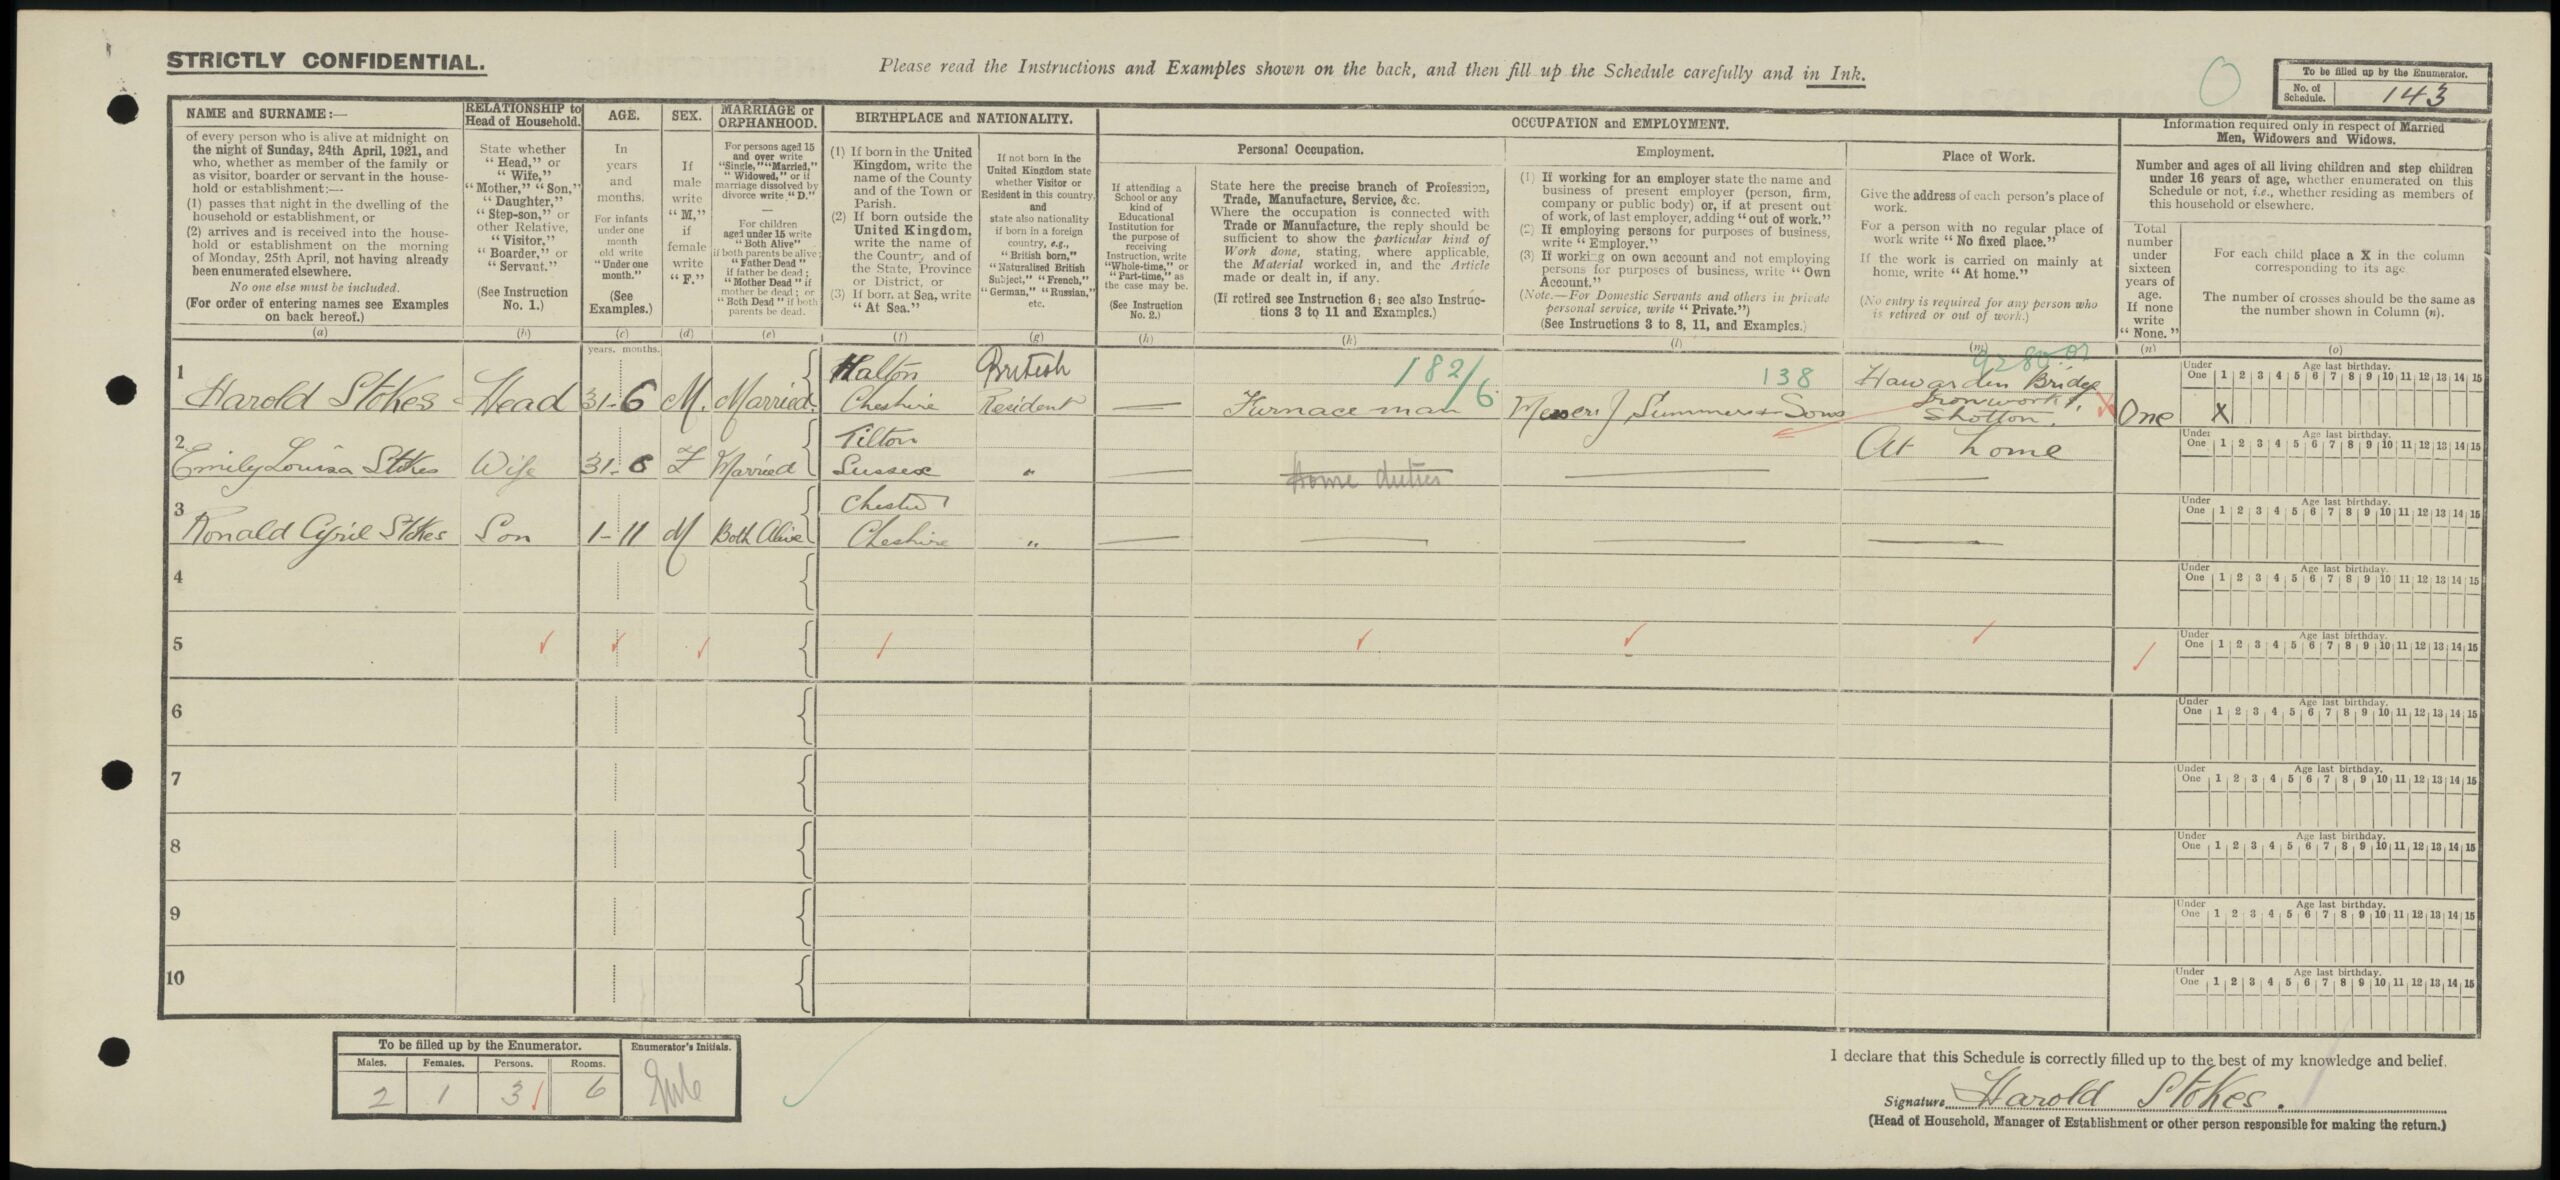 STRICTLY CONFIDENTIAL.
Please read the Instructions and Examples shown on the back, and then fill up the Schedule carefully and in Ink.
To be filled up by the Enumerator.
No. of Schedule. 143
NAME and SURNAME:—
of every person who is alive at midnight on
the night of Sunday, 24th April, 1921, and
who, whether as member of the family or
as visitor, boarder or servant in the house-
hold or establishment:—
(1) passes that night in the dwelling of the
household or establishment, or
(2) arrives and is received into the house-
hold or establishment on the morning
of Monday, 25th April, not having already
been enumerated elsewhere.
No one else must be included.
(For order of entering names see Examples
on back hereof.)
(a)
RELATIONSHIP to
Head of Household.
State whether
"Head," or
"Wife,"
"Mother," "Son,"
"Daughter,"
"Step-son," or
other Relative,
"Visitor,"
"Boarder," or
"Servant."
(See Instruction
No. 1.)
(b)
AGE.
In
years
and
months.
For infants
under one
month
old write
"Under one
month."
(See
Examples.)
(c)
SEX.
If
male
write
"M,"
if
female
write
"F."
(d)
MARRIAGE or
ORPHANHOOD.
For persons aged 15
and over write
"Single," "Married,"
"Widowed," or if
marriage dissolved by
divorce write "D."
For children
aged under 15 write
"Both Alive"
if both parents be alive;
"Father Dead"
if father be dead;
"Mother Dead" if
mother be dead; or
"Both Dead" if both
parents be dead.
(e)
BIRTHPLACE and NATIONALITY.
(1) If born in the United
Kingdom, write the
name of the County
and of the Town or
Parish.
(2) If born outside the
United Kingdom,
write the name of
the Country and of
the State, Province
or District, or
(3) If born at Sea, write
"At Sea."
(f)
If not born in the
United Kingdom state
whether Visitor or
Resident in this country,
and
state also nationality
if born in a foreign
country, e.g.,
"British born,"
"Naturalised British
Subject," "French,"
"German," "Russian,"
etc.
(g)
OCCUPATION and EMPLOYMENT.
If attending a
School or any
kind of
Educational
Institution for
the purpose of
receiving
Instruction, write
"Whole-time," or
"Part-time," as
the case may be.
(See Instruction
No. 2.)
(h)
Personal Occupation.
State here the precise branch of Profession,
Trade, Manufacture, Service, &c.
Where the occupation is connected with
Trade or Manufacture, the reply should be
sufficient to show the particular kind of
Work done, stating, where applicable,
the Material worked in, and the Article
made or dealt in, if any.
(If retired see Instruction 6; see also Instruc-
tions 3 to 11 and Examples.)
(k)
Employment.
(1) If working for an employer state the name and
business of present employer (person, firm,
company or public body) or, if at present out
of work, of last employer, adding "out of work."
(2) If employing persons for purposes of business,
write "Employer."
(3) If working on own account and not employing
persons for purposes of business, write "Own
Account."
(Note.—For Domestic Servants and others in private
personal service, write "Private.")
(See Instructions 3 to 8, 11, and Examples.)
(l)
Place of Work.
Give the address of each person's place of
work.
For a person with no regular place of
work write "No fixed place."
If the work is carried on mainly at
home, write "At home."
(No entry is required for any person who
is retired or out of work.)
(m)
Information required only in respect of Married
Men, Widowers and Widows.
Number and ages of all living children and step children
under 16 years of age, whether enumerated on this
Schedule or not, i.e., whether residing as members of
this household or elsewhere.
Total
number
under
sixteen
years of
age.
If none
write
"None."
(n)
For each child place a X in the column
corresponding to its age
The number of crosses should be the same as
the number shown in Column (n).
(o)
years. months.
Under One Age last birthday. 1 2 3 4 5 6 7 8 9 10 11 12 13 14 15
1 Harold Stokes Head 31-6 M. Married. Halton Cheshire British Resident — Furnace man 182/6 Messrs J. Summers & Sons 138 Hawarden Bridge Ironworks, Shotton. One X
Under One Age last birthday. 1 2 3 4 5 6 7 8 9 10 11 12 13 14 15
2 Emily Louisa Stokes Wife 31-6 F Married Tilton Sussex " — Home duties — At home
Under One Age last birthday. 1 2 3 4 5 6 7 8 9 10 11 12 13 14 15
3 Ronald Cyril Stokes Son 1-11 M Both Alive Chester Cheshire " — — — —
Under One Age last birthday. 1 2 3 4 5 6 7 8 9 10 11 12 13 14 15
4
Under One Age last birthday. 1 2 3 4 5 6 7 8 9 10 11 12 13 14 15
5
Under One Age last birthday. 1 2 3 4 5 6 7 8 9 10 11 12 13 14 15
6
Under One Age last birthday. 1 2 3 4 5 6 7 8 9 10 11 12 13 14 15
7
Under One Age last birthday. 1 2 3 4 5 6 7 8 9 10 11 12 13 14 15
8
Under One Age last birthday. 1 2 3 4 5 6 7 8 9 10 11 12 13 14 15
9
Under One Age last birthday. 1 2 3 4 5 6 7 8 9 10 11 12 13 14 15
10
Under One Age last birthday. 1 2 3 4 5 6 7 8 9 10 11 12 13 14 15
To be filled up by the Enumerator.
Enumerator's Initials.
Males. Females. Persons. Rooms.
2 1 3 6
I declare that this Schedule is correctly filled up to the best of my knowledge and belief.
Signature Harold Stokes.
(Head of Household, Manager of Establishment or other person responsible for making the return.)